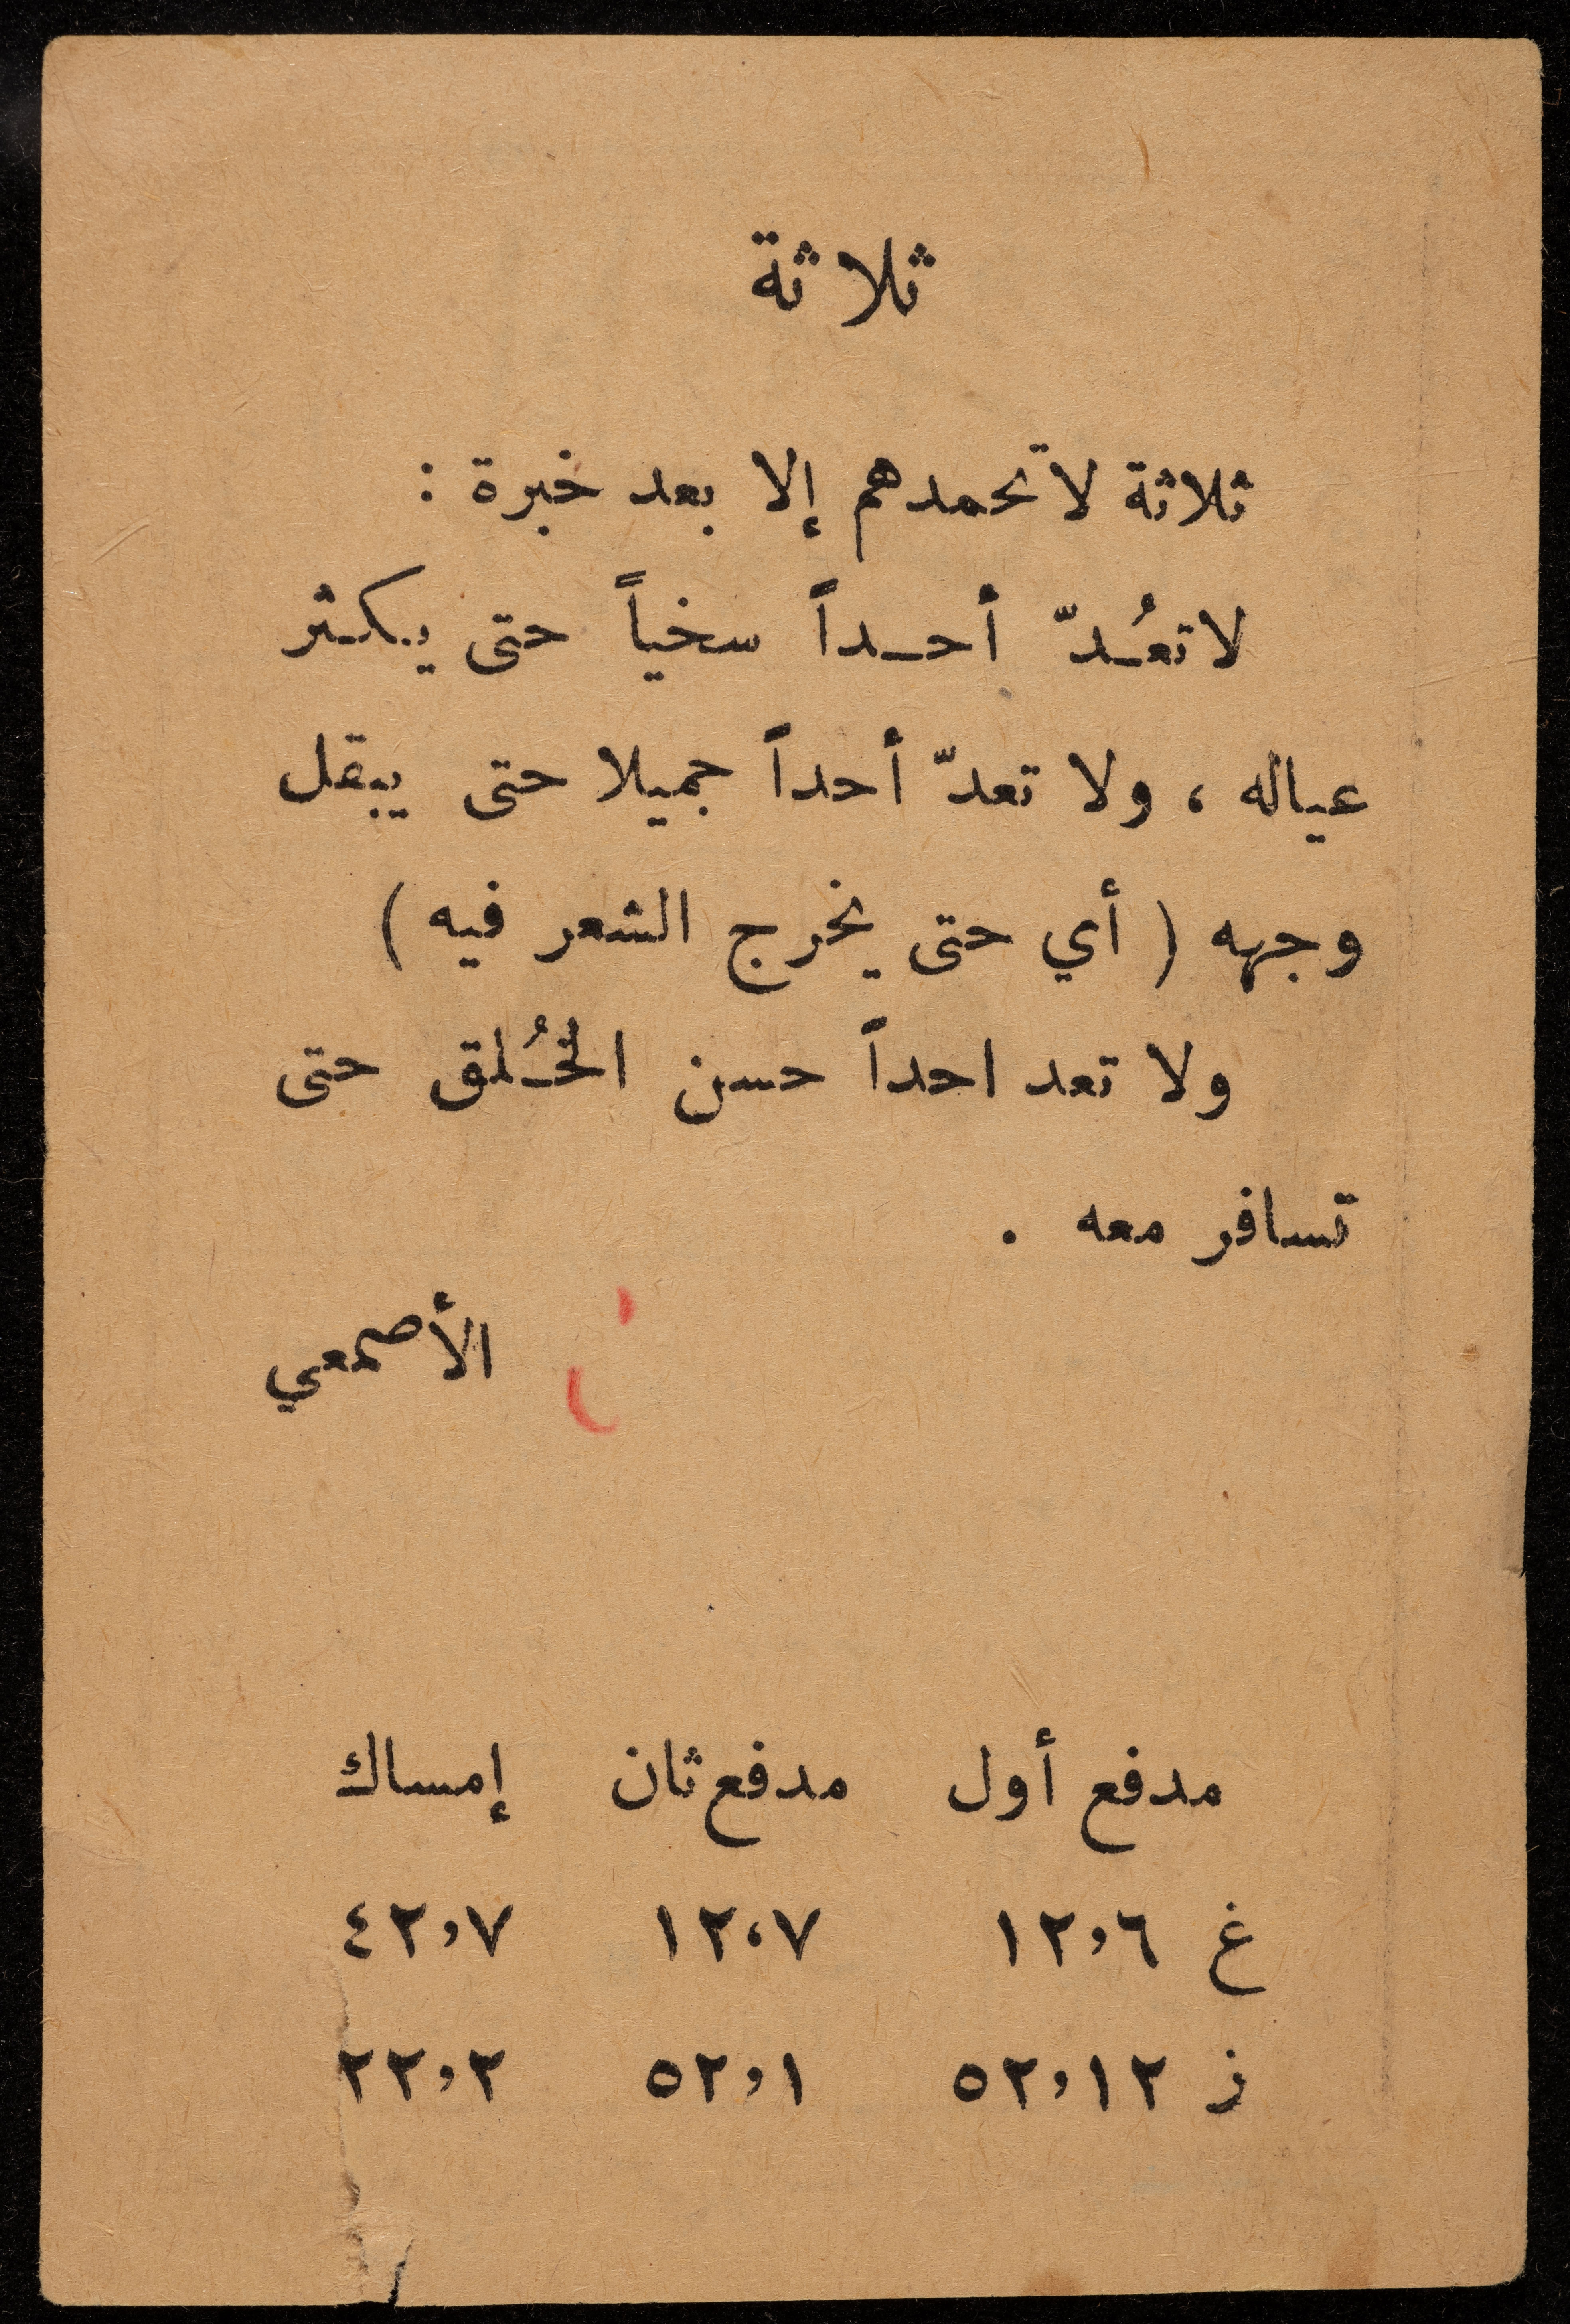 ثلاثة
ثلاثة لا تحمدهم إلا بعد خبرة :
لا تعُـدّ أحـداً سخياً حتى يكثر
عياله ، ولا تعدّ أحداً جميلا حتى يبقل
وجهه ( أي حتى يخرج الشعر فيه )
ولا تعد احداً حسن الخُـلق حتى
تسافر معه .
الأصمعي
مدفع أول مدفع ثان إمساك
غ ١٢,٦ ١٢,٧ ٤٢,٧
ز ٥٢,١٢ ٥٢,١ ٢٢,٢